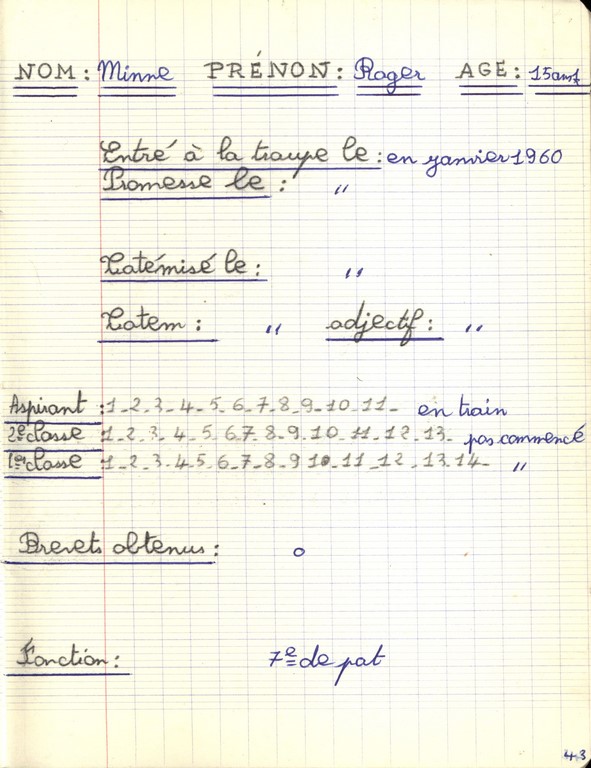 NOM: Minne PRÉNON: Roger AGE: 15ans
Entré à la troupe le: en janvier 1960
Promesse le: "
Totémisé le: "
Totem: " adjectif: "
Aspirant: 1_2_3_4_5_6_7_8_9_10_11_ en train
2e classe: 1_2_3_4_5_6_7_8_9_10_11_12_13_ pas commencé
1e classe: 1_2_3_4_5_6_7_8_9_10_11_12_13_14_ "
Brevets obtenus: 0
Fonction: 7e de pat
43